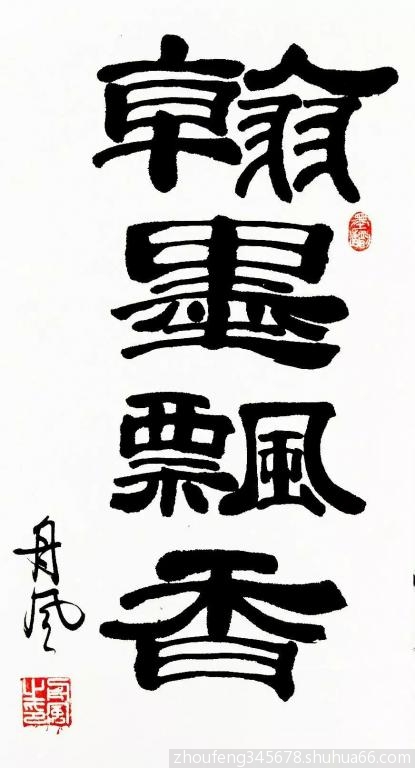 翰墨飘香
丹风
zhoufeng345678.shuhua66.com